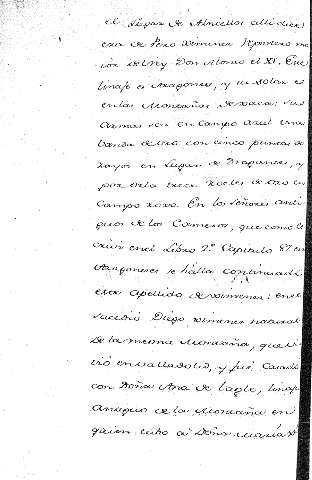 el Lugar de Almiellos allí dice
era de Pero Ximenez Montero ma
ior del Rey Don Alonso el XI. Este
linaje es Aragones, y su solar es
en las Montañas de Jaca; sus
Armas son en Campo Azul una
Vanda de oro con cinco puntas de
rayos en Lugar de Dragantes, y
por orla trece Roeles de oro en
Campo roxo. En los señores anti
guos de los Cameros, que como le
en el Libro 2º Capitulo 87 en
Aragoneses se halla continuado
este Apellido de Ximenez: en
sucedió Diego Ximenez natural
de la mesma Montaña, que vi
vió en Valladolid, y fue Casado
con Doña Ana de Lagle, linaje
Antiguo de la Montaña en
quien hubo a Doña Maria